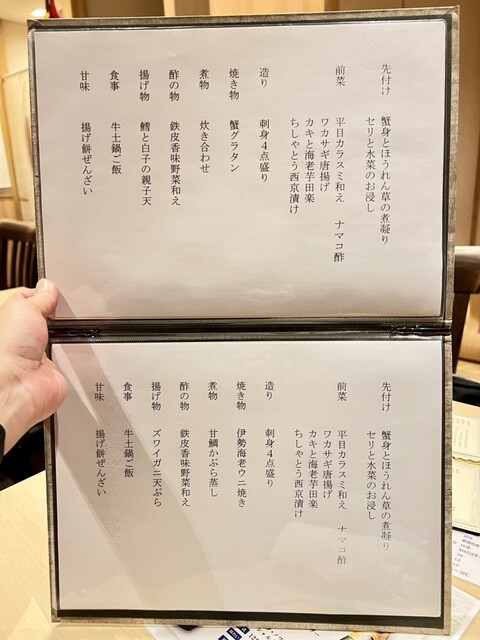 先付け　蟹身とほうれん草の煮凝り
セリと水菜のお浸し
前菜　平目カラスミ和え　ナマコ酢
ワカサギ唐揚げ
カキと海老芋田楽
ちしゃとう西京漬け
造り　刺身４点盛り
焼き物　蟹グラタン
煮物　炊き合わせ
酢の物　鉄皮香味野菜和え
揚げ物　鱈と白子の親子天
食事　牛土鍋ご飯
甘味　揚げ餅ぜんざい
先付け　蟹身とほうれん草の煮凝り
セリと水菜のお浸し
前菜　平目カラスミ和え　ナマコ酢
ワカサギ唐揚げ
カキと海老芋田楽
ちしゃとう西京漬け
造り　刺身４点盛り
焼き物　伊勢海老ウニ焼き
煮物　甘鯛かぶら蒸し
酢の物　鉄皮香味野菜和え
揚げ物　ズワイガニ天ぷら
食事　牛土鍋ご飯
甘味　揚げ餅ぜんざい